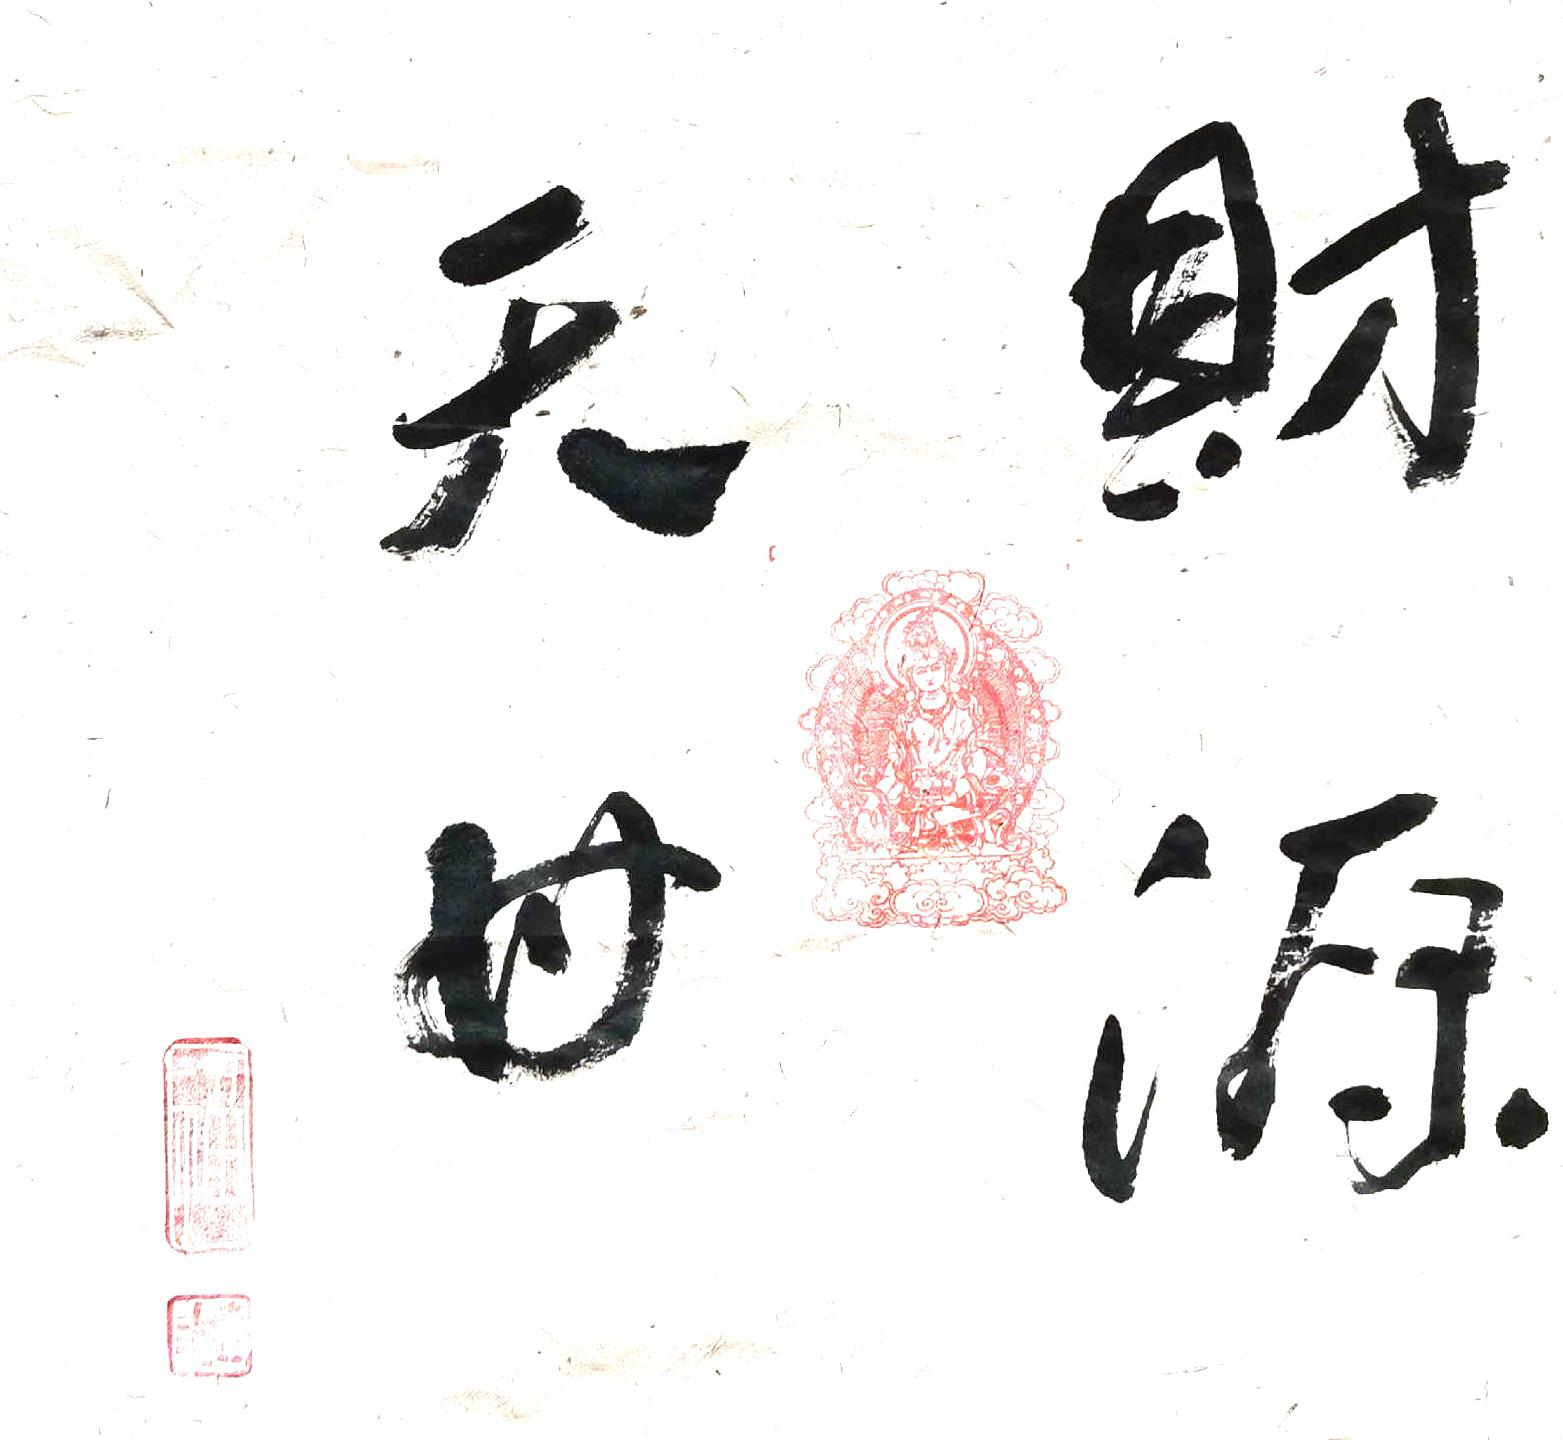 財源
天母